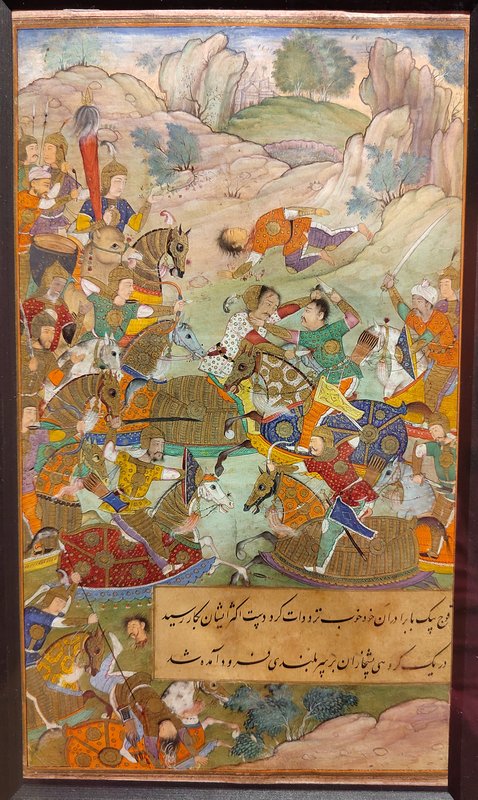 قوج بیک با برادران خود خوب ترددات کرد و دست اکثر ایشان بکار رسید
در یک کروهی پشخاران بر سر بلندی فرود آمده شد